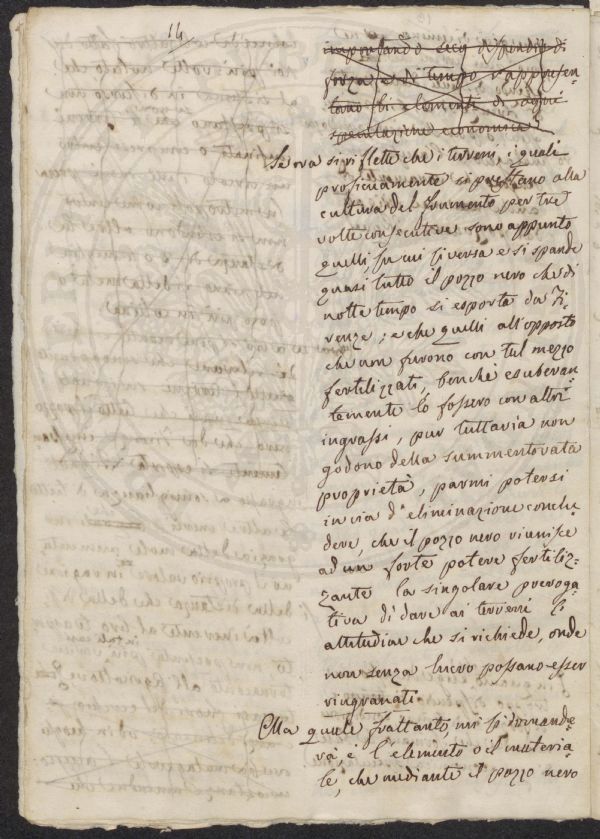 14
importando seco dispendio di
forza e di tempo rappresen-
tano gli elementi di
speculazione economica
Se ora si riflette che i terreni, i quali
proficuamente si prestano alla
cultura del frumento per tre
volte consecutive sono appunto
quelli, su cui si versa e si spande
quasi tutto il pozzo nero che di
notte tempo si esporta da Fi-
renze; e che quelli all'opposto
che non furono con tal mezzo
fertilizzati, benchè esuberan-
temente lo fossero con altri
ingrassi, pur tuttavia non
godono della summentovata
proprietà, parmi potersi
in via d'eliminazione conclu
dere, che il pozzo nero riunisce
ad un forte potere fertiliz-
zante la singolare preroga-
tiva di dare ai terreni l'
attitudine che si richiede, onde
non senza lucro possano esser
ringranati.
Ma quale frattanto, mi si domande-
rà, è l'elemento o il materia-
le, che mediante il pozzo nero